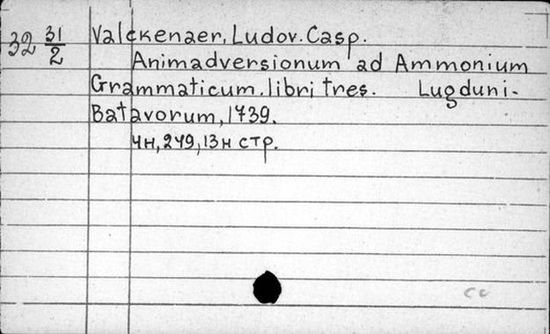 32 31/2 Valckenaer, Ludov. Casp.
Animadversionum ad Ammonium
Grammaticum. libri tres. Lugduni-
Batavorum, 1739.
4н, 249, 13н стр.